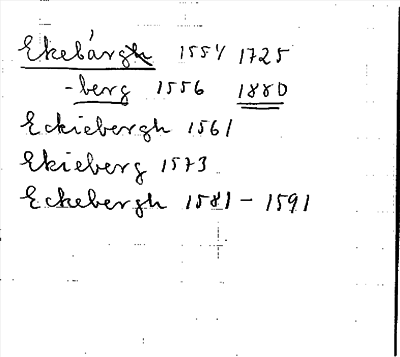 Ekebárgh 1554 1725
-berg 1556 1880
Eckiebergh 1561
Ekieberg 1573
Eckebergh 1581 - 1591